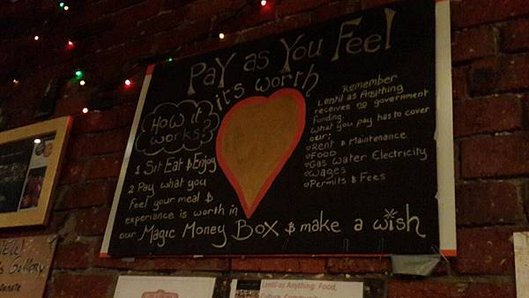 Pay as You Feel
it's worth
How it
works?
1 Sit Eat & Enjoy
2 Pay what you
feel your meal &
experience is worth in
our Magic Money Box & make a wish
Remember
Lentil as Anything
receives no government
funding.
What you pay has to cover
our:
Rent & Maintenance
Food
Gas Water Electricity
Wages
Permits & Fees
Lentil as Anything: Food,